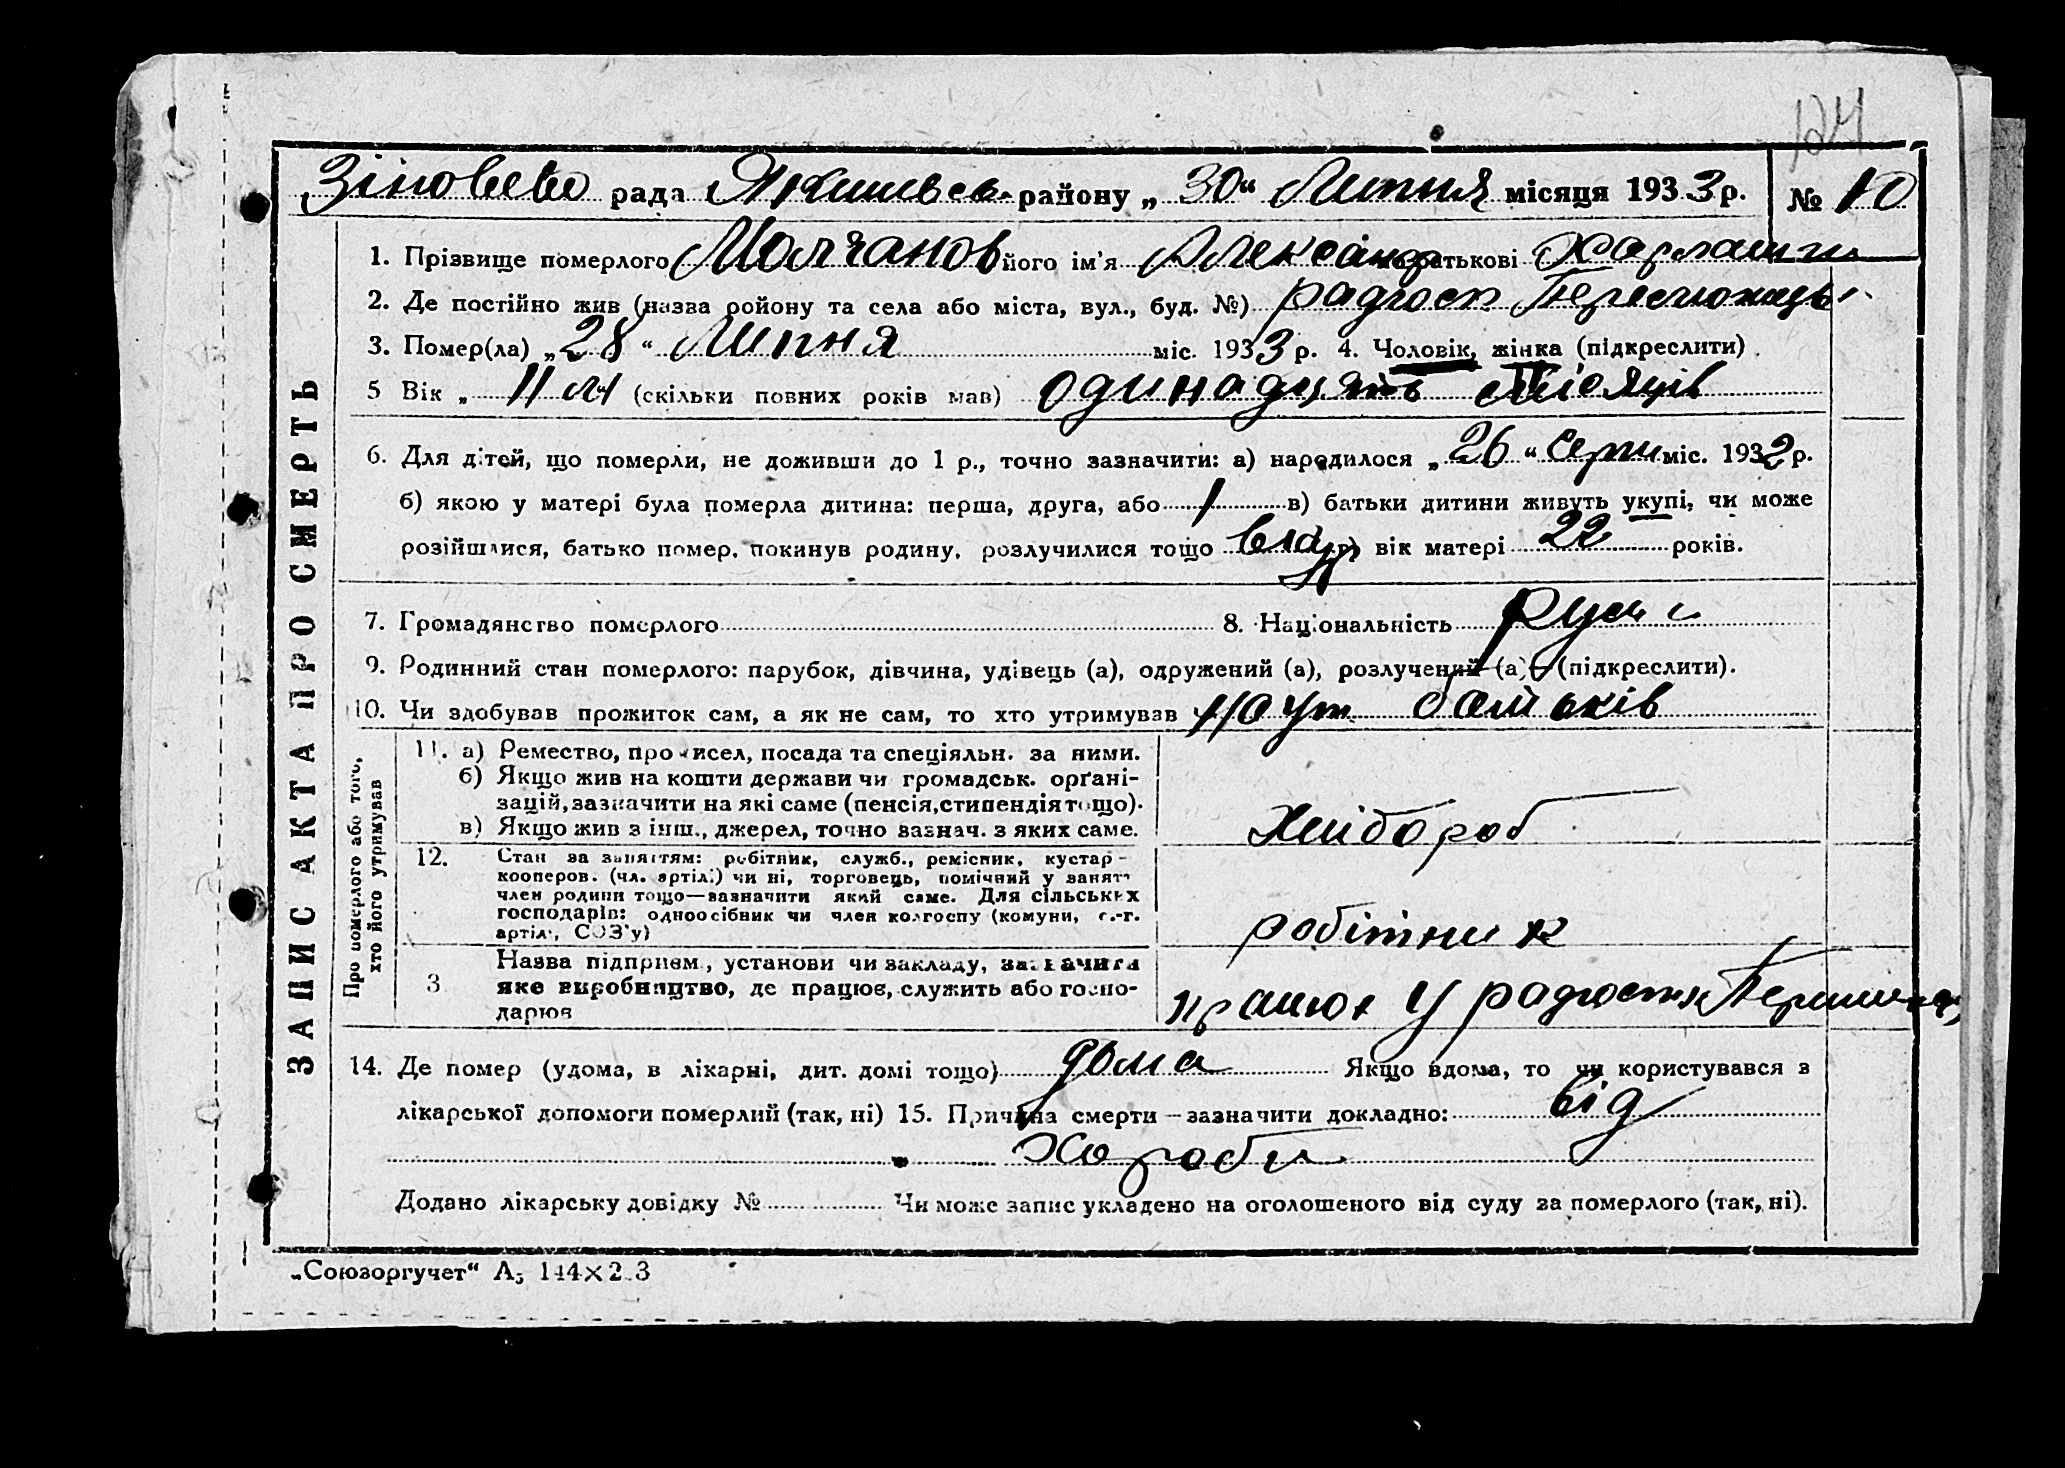 124
рада району „ 30 “ Липня місяця 1933 р. № 10
ЗАПИС АКТА ПРО СМЕРТЬ
1. Прізвище померлого Молчанов його ім'я Александр по батькові
2. Де постійно жив (назва району та села або міста, вул., буд. №) радгосп
3. Помер(ла) „ 28 “ Липня міс. 1933 р. 4. Чоловік, жінка (підкреслити)
5 Вік „ 11 м (скільки повних років мав) одинадцять місяців
6. Для дітей, що померли, не доживши до 1 р., точно зазначити: а) народилося „ 26 “ серпн міс. 1932 р.
б) якою у матері була померла дитина: перша, друга, або 1 в) батьки дитини живуть укупі, чи може
розійшлися, батько помер, покинув родину, розлучилися тощо вік матері 22 років.
7. Громадянство померлого 8. Національність
9. Родинний стан померлого: парубок, дівчина, удівець (а), одружений (а), розлучений (а) (підкреслити).
10. Чи здобував прожиток сам, а як не сам, то хто утримував на ут. батьків
Про померлого або того, хто його утримував
11. а) Ремество, промисел, посада та спеціяльн. за ними.
б) Якщо жив на кошти держави чи громадськ. орґані-
зацій, зазначити на які саме (пенсія, стипендія тощо).
в) Якщо жив з інш., джерел, точно зазнач. з яких саме.
Хлібороб
12. Стан за заняттям: робітник, служб., ремісник, кустар -
кооперов. (чл. артіл.) чи ні, торговець, помічний у занятт
член родини тощо—зазначити який саме. Для сільських
господарів: одноосібник чи член колгоспу (комуни, с.-г.
артіл., СОЗ'у)
робітник
3 Назва підприєм., установи чи закладу, зазначити
яке виробництво, де працює, служить або госпо-
дарює
працює у
14. Де помер (удома, в лікарні, дит. домі тощо) дома Якщо вдома, то чи користувався з
лікарської допомоги померлий (так, ні) 15. Причина смерти — зазначити докладно: від
хороби
Додано лікарську довідку № Чи може запис укладено на оголошеного від суду за померлого (так, ні).
„Союзоргучет“ А5 144×2 3